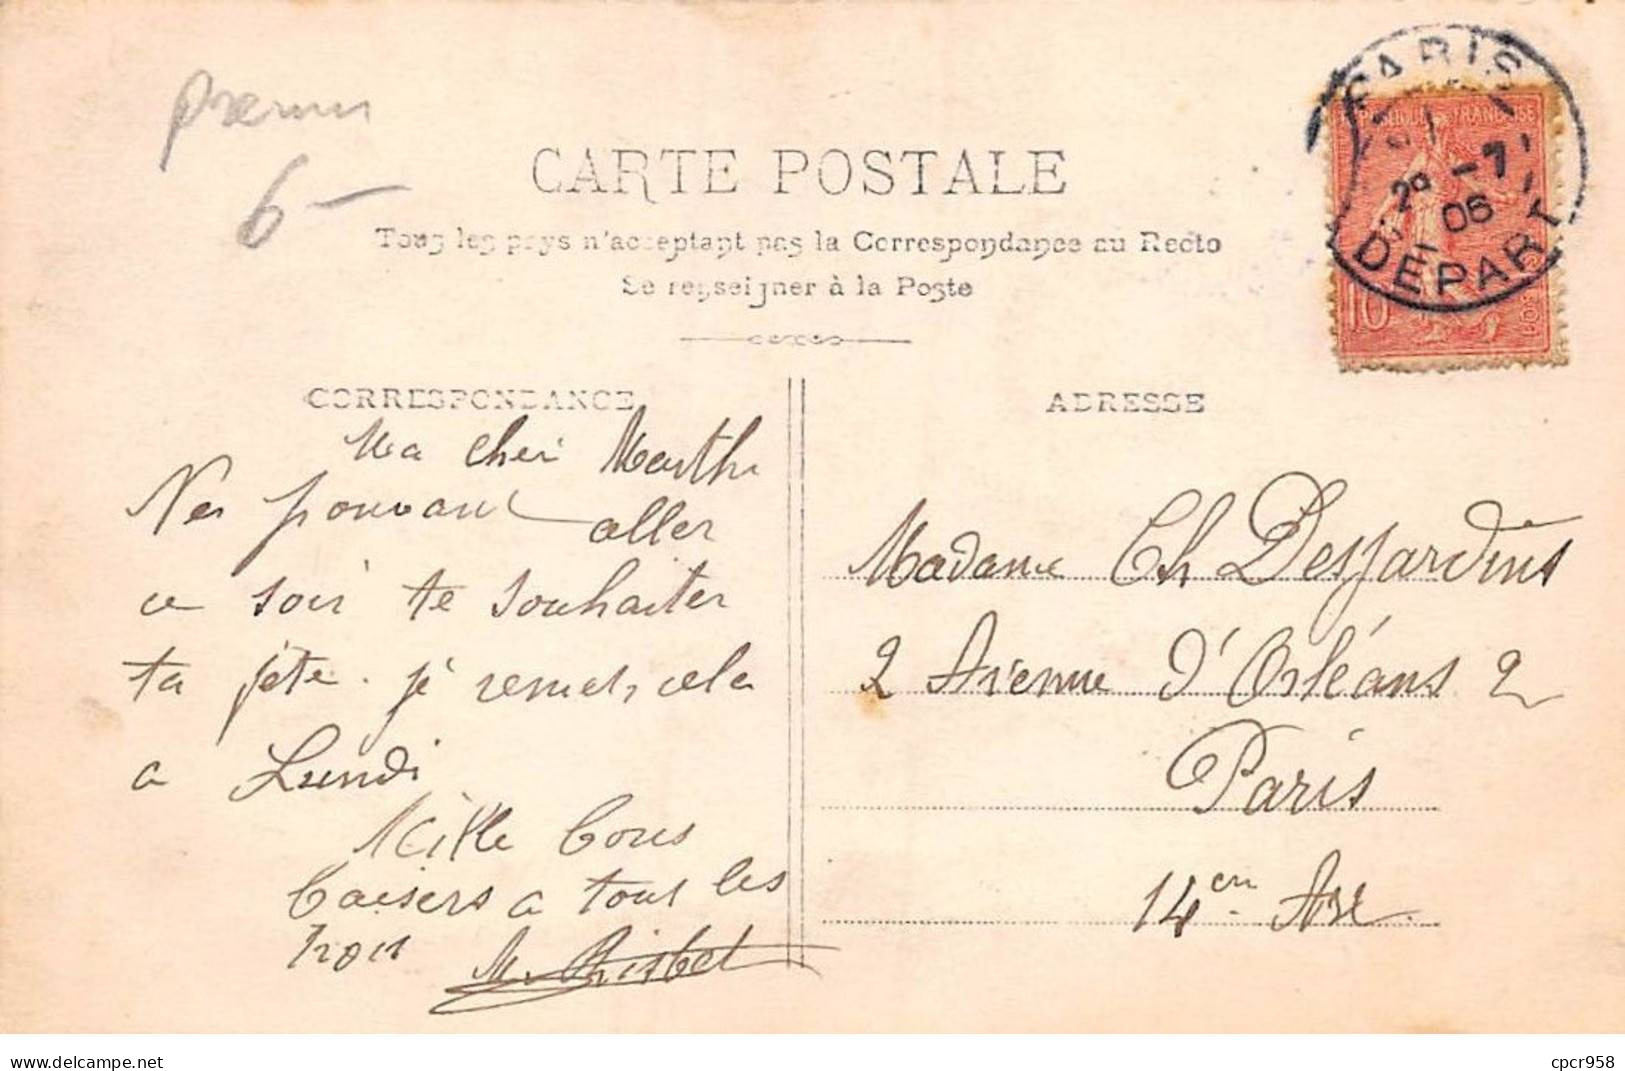 6-
CARTE POSTALE
Tous les pays n'acceptant pas la Correspondance au Recto
Se renseigner à la Poste
PARIS
29 - 7
06
DEPART
REPUBLIQUE FRANÇAISE
10
CORRESPONDANCE
Ma cher Marthe
Ne pouvant aller
ce soir te souhaiter
ta fête. je remet, cela
a Lundi
Mille bons
baisers a tous les
trois
M.
ADRESSE
Madame Ch Desjardins
2 Avenue d'Orléans 2
Paris
14en Are
www.delcampe.net
cpcr958